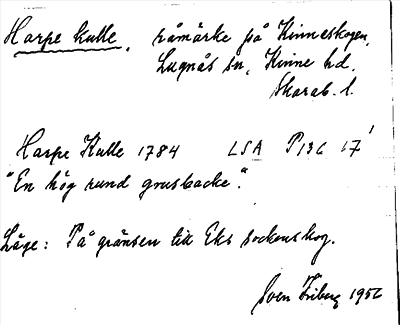 Harpe kulle, råmärke på Kinneskogen,
Lugnås sn, Kinne hd.
Skarab. l.
Harpe Kulle 1784 LSA P136 17¹
"En hög rund grusbacke".
Läge: På gränsen till Eks sockenskog.
Sven Friberg 1956